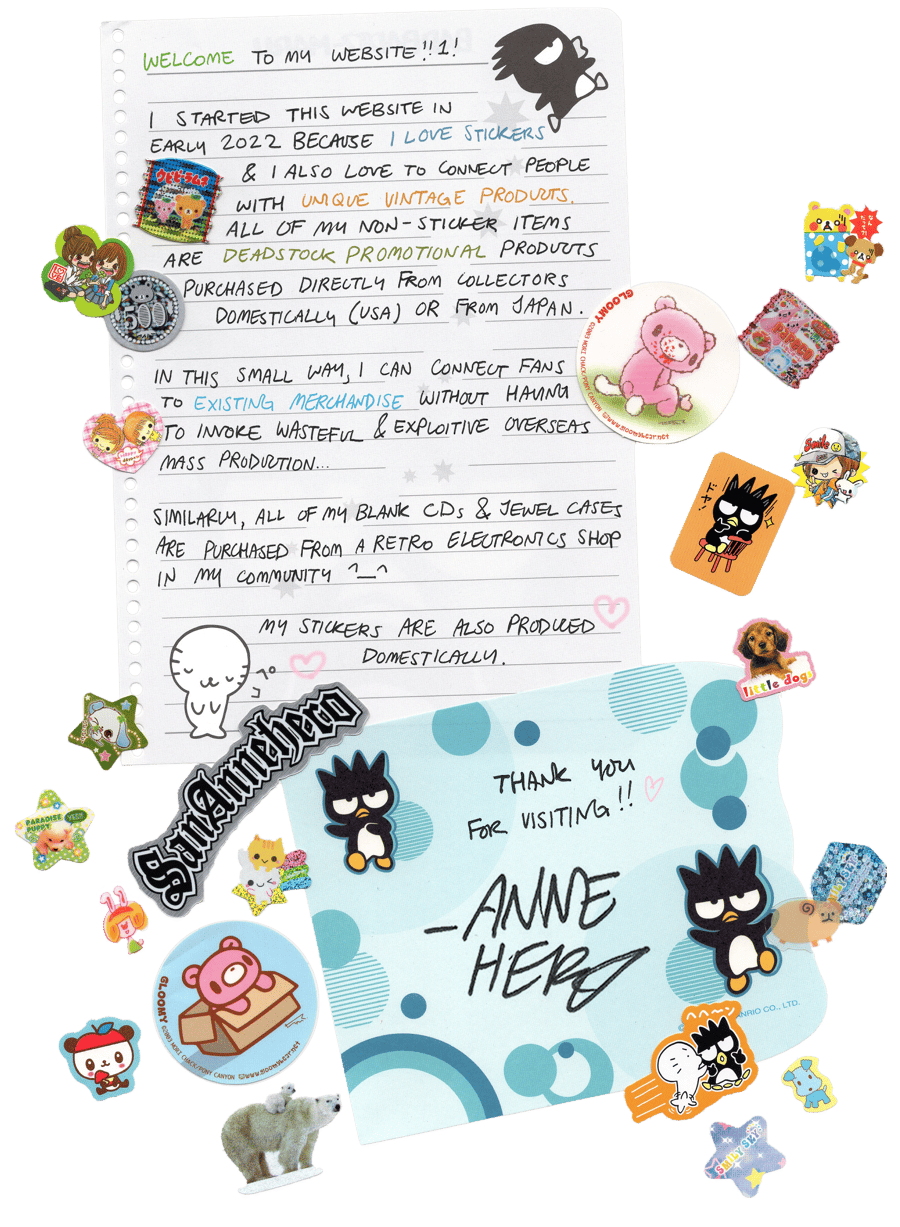 WELCOME TO MY WEBSITE!!1!
I STARTED THIS WEBSITE IN
EARLY 2022 BECAUSE I LOVE STICKERS
& I ALSO LOVE TO CONNECT PEOPLE
WITH UNIQUE VINTAGE PRODUCTS.
ALL OF MY NON-STICKER ITEMS
ARE DEADSTOCK PROMOTIONAL PRODUCTS
PURCHASED DIRECTLY FROM COLLECTORS
DOMESTICALLY (USA) OR FROM JAPAN.
IN THIS SMALL WAY, I CAN CONNECT FANS
TO EXISTING MERCHANDISE WITHOUT HAVING
TO INVOKE WASTEFUL & EXPLOITIVE OVERSEAS
MASS PRODUCTION...
SIMILARLY, ALL OF MY BLANK CDs & JEWEL CASES
ARE PURCHASED FROM A RETRO ELECTRONICS SHOP
IN MY COMMUNITY ^_^
MY STICKERS ARE ALSO PRODUCED
DOMESTICALLY.
500
GLOOMY ©2003 MORI CHACK/PONY CANYON @www.gloomy63r.net
Smile
little dogs
SanAnneHero
PARADISE
PUPPY
THANK YOU
FOR VISITING!!
-ANNE
HERO
GLOOMY ©2003 MORI CHACK/PONY CANYON @www.gloomy63r.net
ANRIO CO., LTD.
へへ〜ン
SMILY SKY